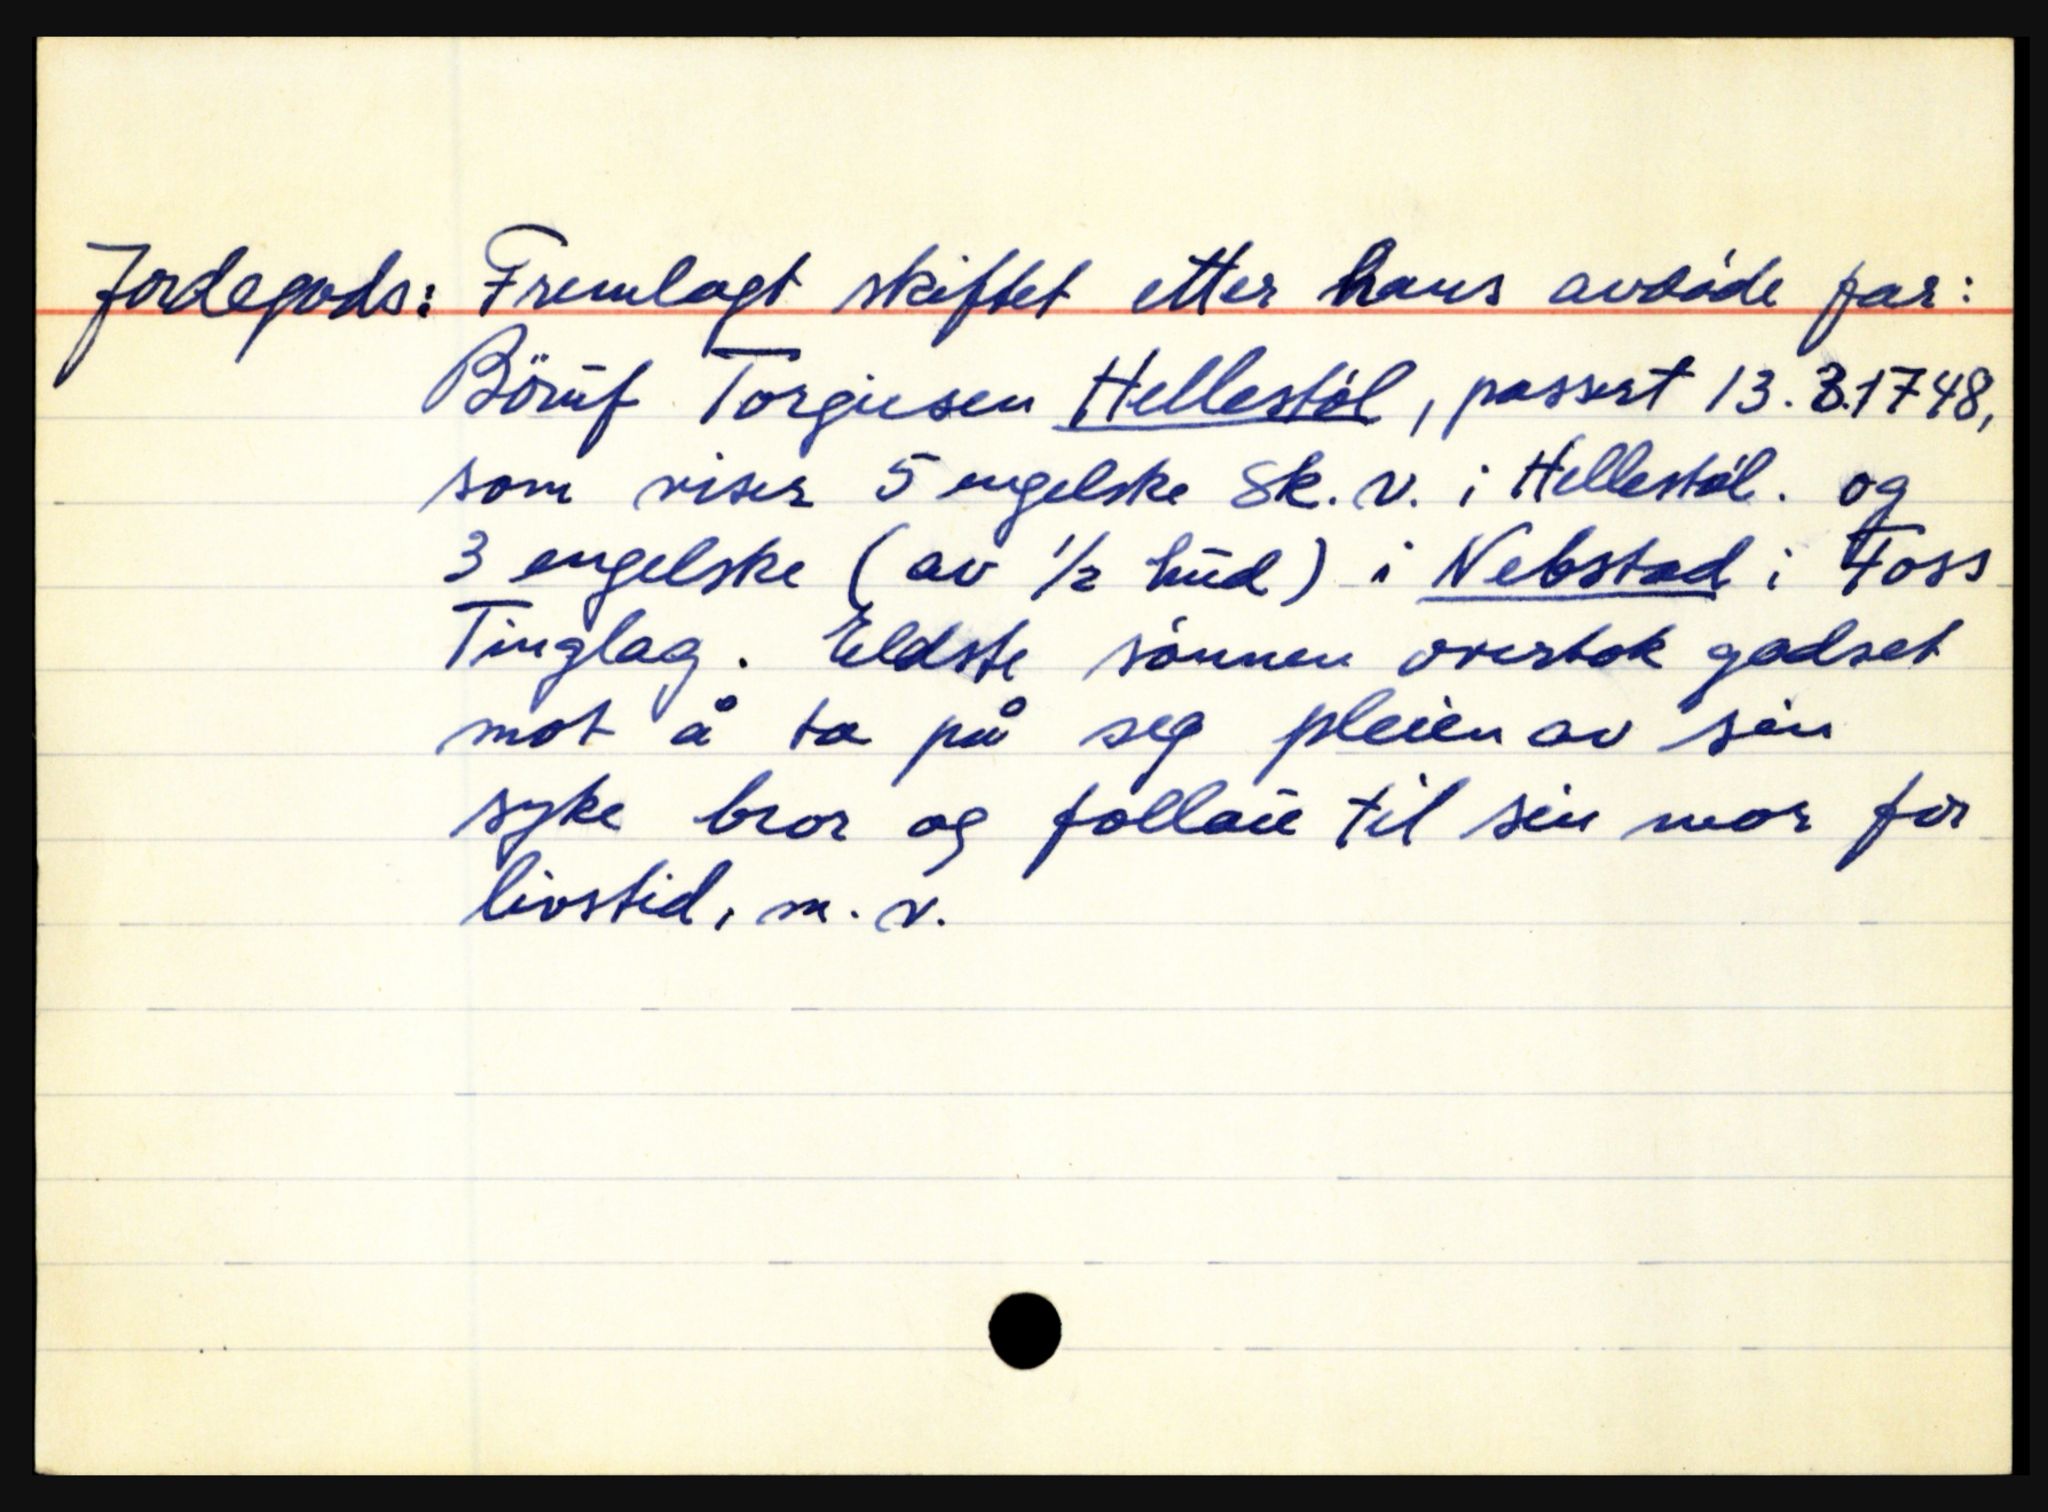 Jordegods: Fremlagt skiftet etter hans avdöde far:
Börúf Torgiusen Hellestöl, passert 13. 3.1748,
som viser 5 engelske Sk. v. i Hellestöl. og
3 engelske (av 1/2 hud) i Nebstad i Foss
Tinglag. Eldste sönnen overtok godset
mot å ta på seg pleien av sin
syke bror og follaú til sin mor for
livstid, m. v.